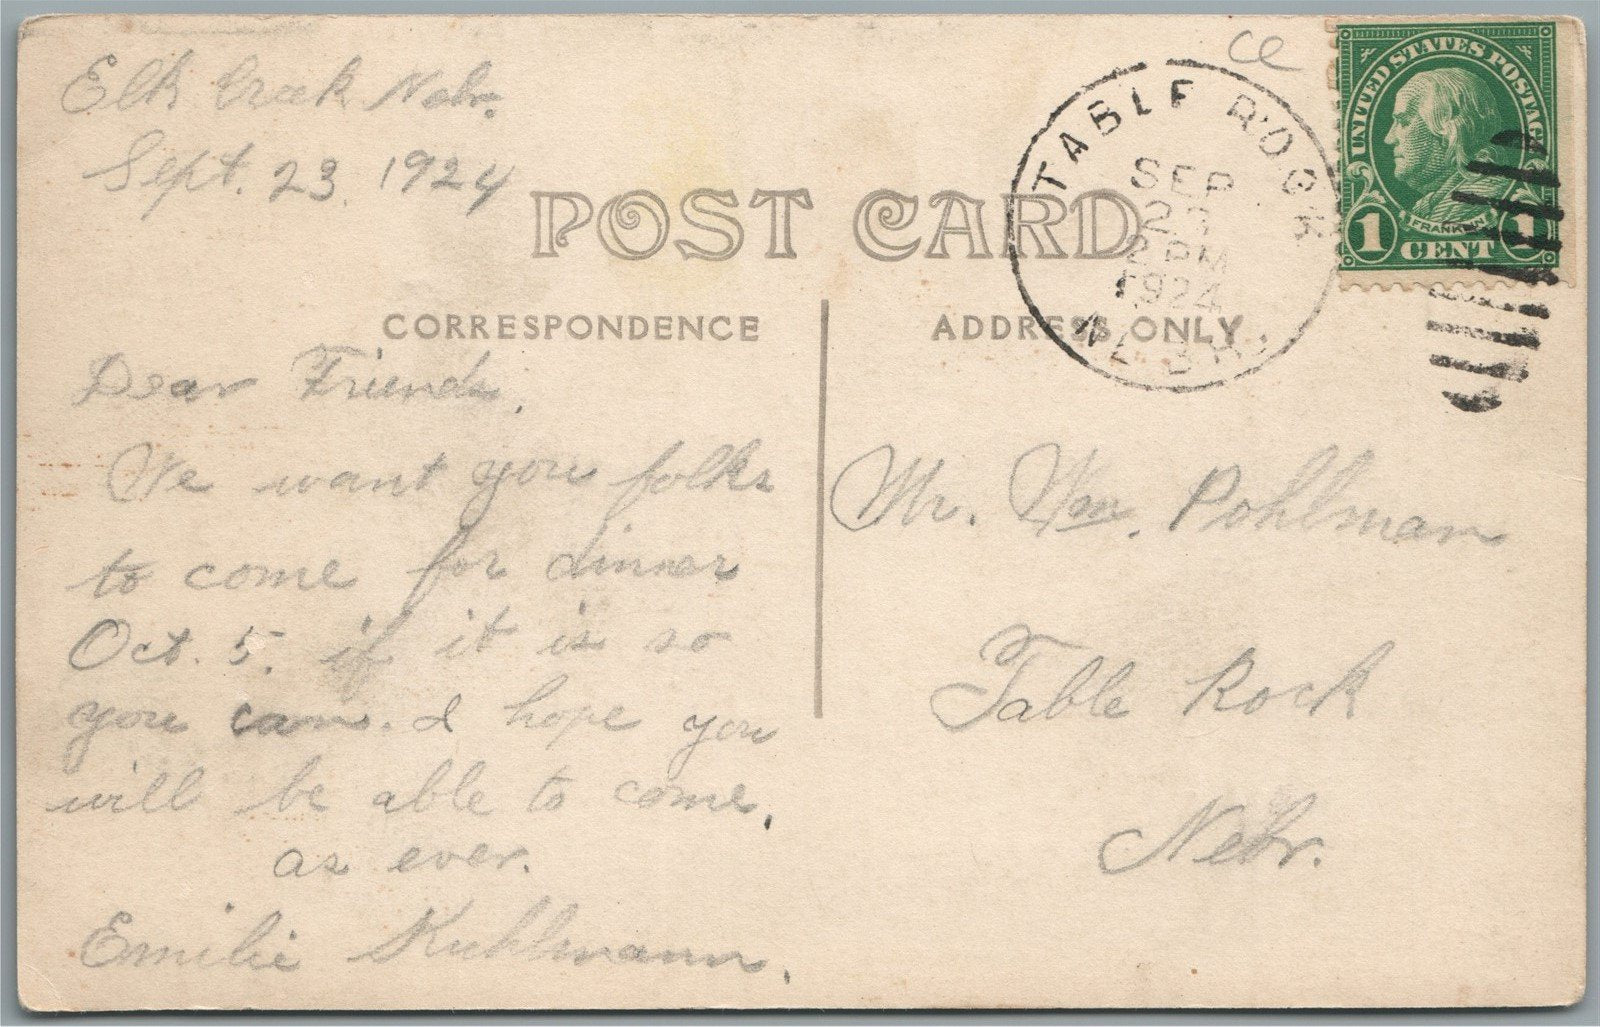 Elk Creek Nebr.
Sept. 23. 1924
POST CARD
CORRESPONDENCE
Dear Friends,
We want you folks
to come for dinner
Oct. 5. if it is so
you can. I hope you
will be able to come,
as ever.
Emilie Kuhlmann.
ce
TABLE ROCK
SEP
23
2 PM
1924
NEBR.
UNITED STATES POSTAGE
FRANKLIN
1 CENT 1
ADDRESS ONLY
Mr. Wm. Pohlman
Table Rock
Nebr.